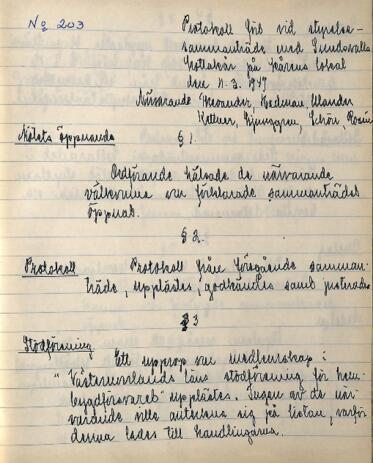 No 203
Protokoll förb vid styrelse-
sammanträde med Sundsvalls
Lottakår på Kårens lokal
den 11.3.1947
Närvarande Hedman, Ulander
Kellner, Ljunggren, Schön, Rosén
Mötets öppnande § 1.
Ordförande hälsade de närvarande
välkomna och förklarade sammanträdet
öppnat.
§ 2.
Protokoll Protokoll från föregående samman-
träde, upplästes, godkändes samt justerades
§ 3
Stödförening.
Ett upprop om medlemskap i
"Västernorrlands läns stödförening för hem-
bygdförsvaret" upplästes. Ingen av de när-
varande ville anteckna sig på listan, varför
denna lades till handlingarna.